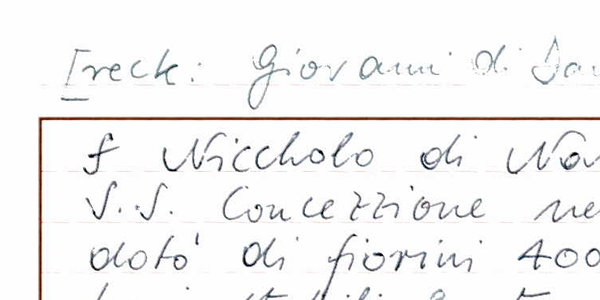 [reck: Giovanni di
f Niccholo di
S.S. Concezzione ne
dotò di fiorini 400